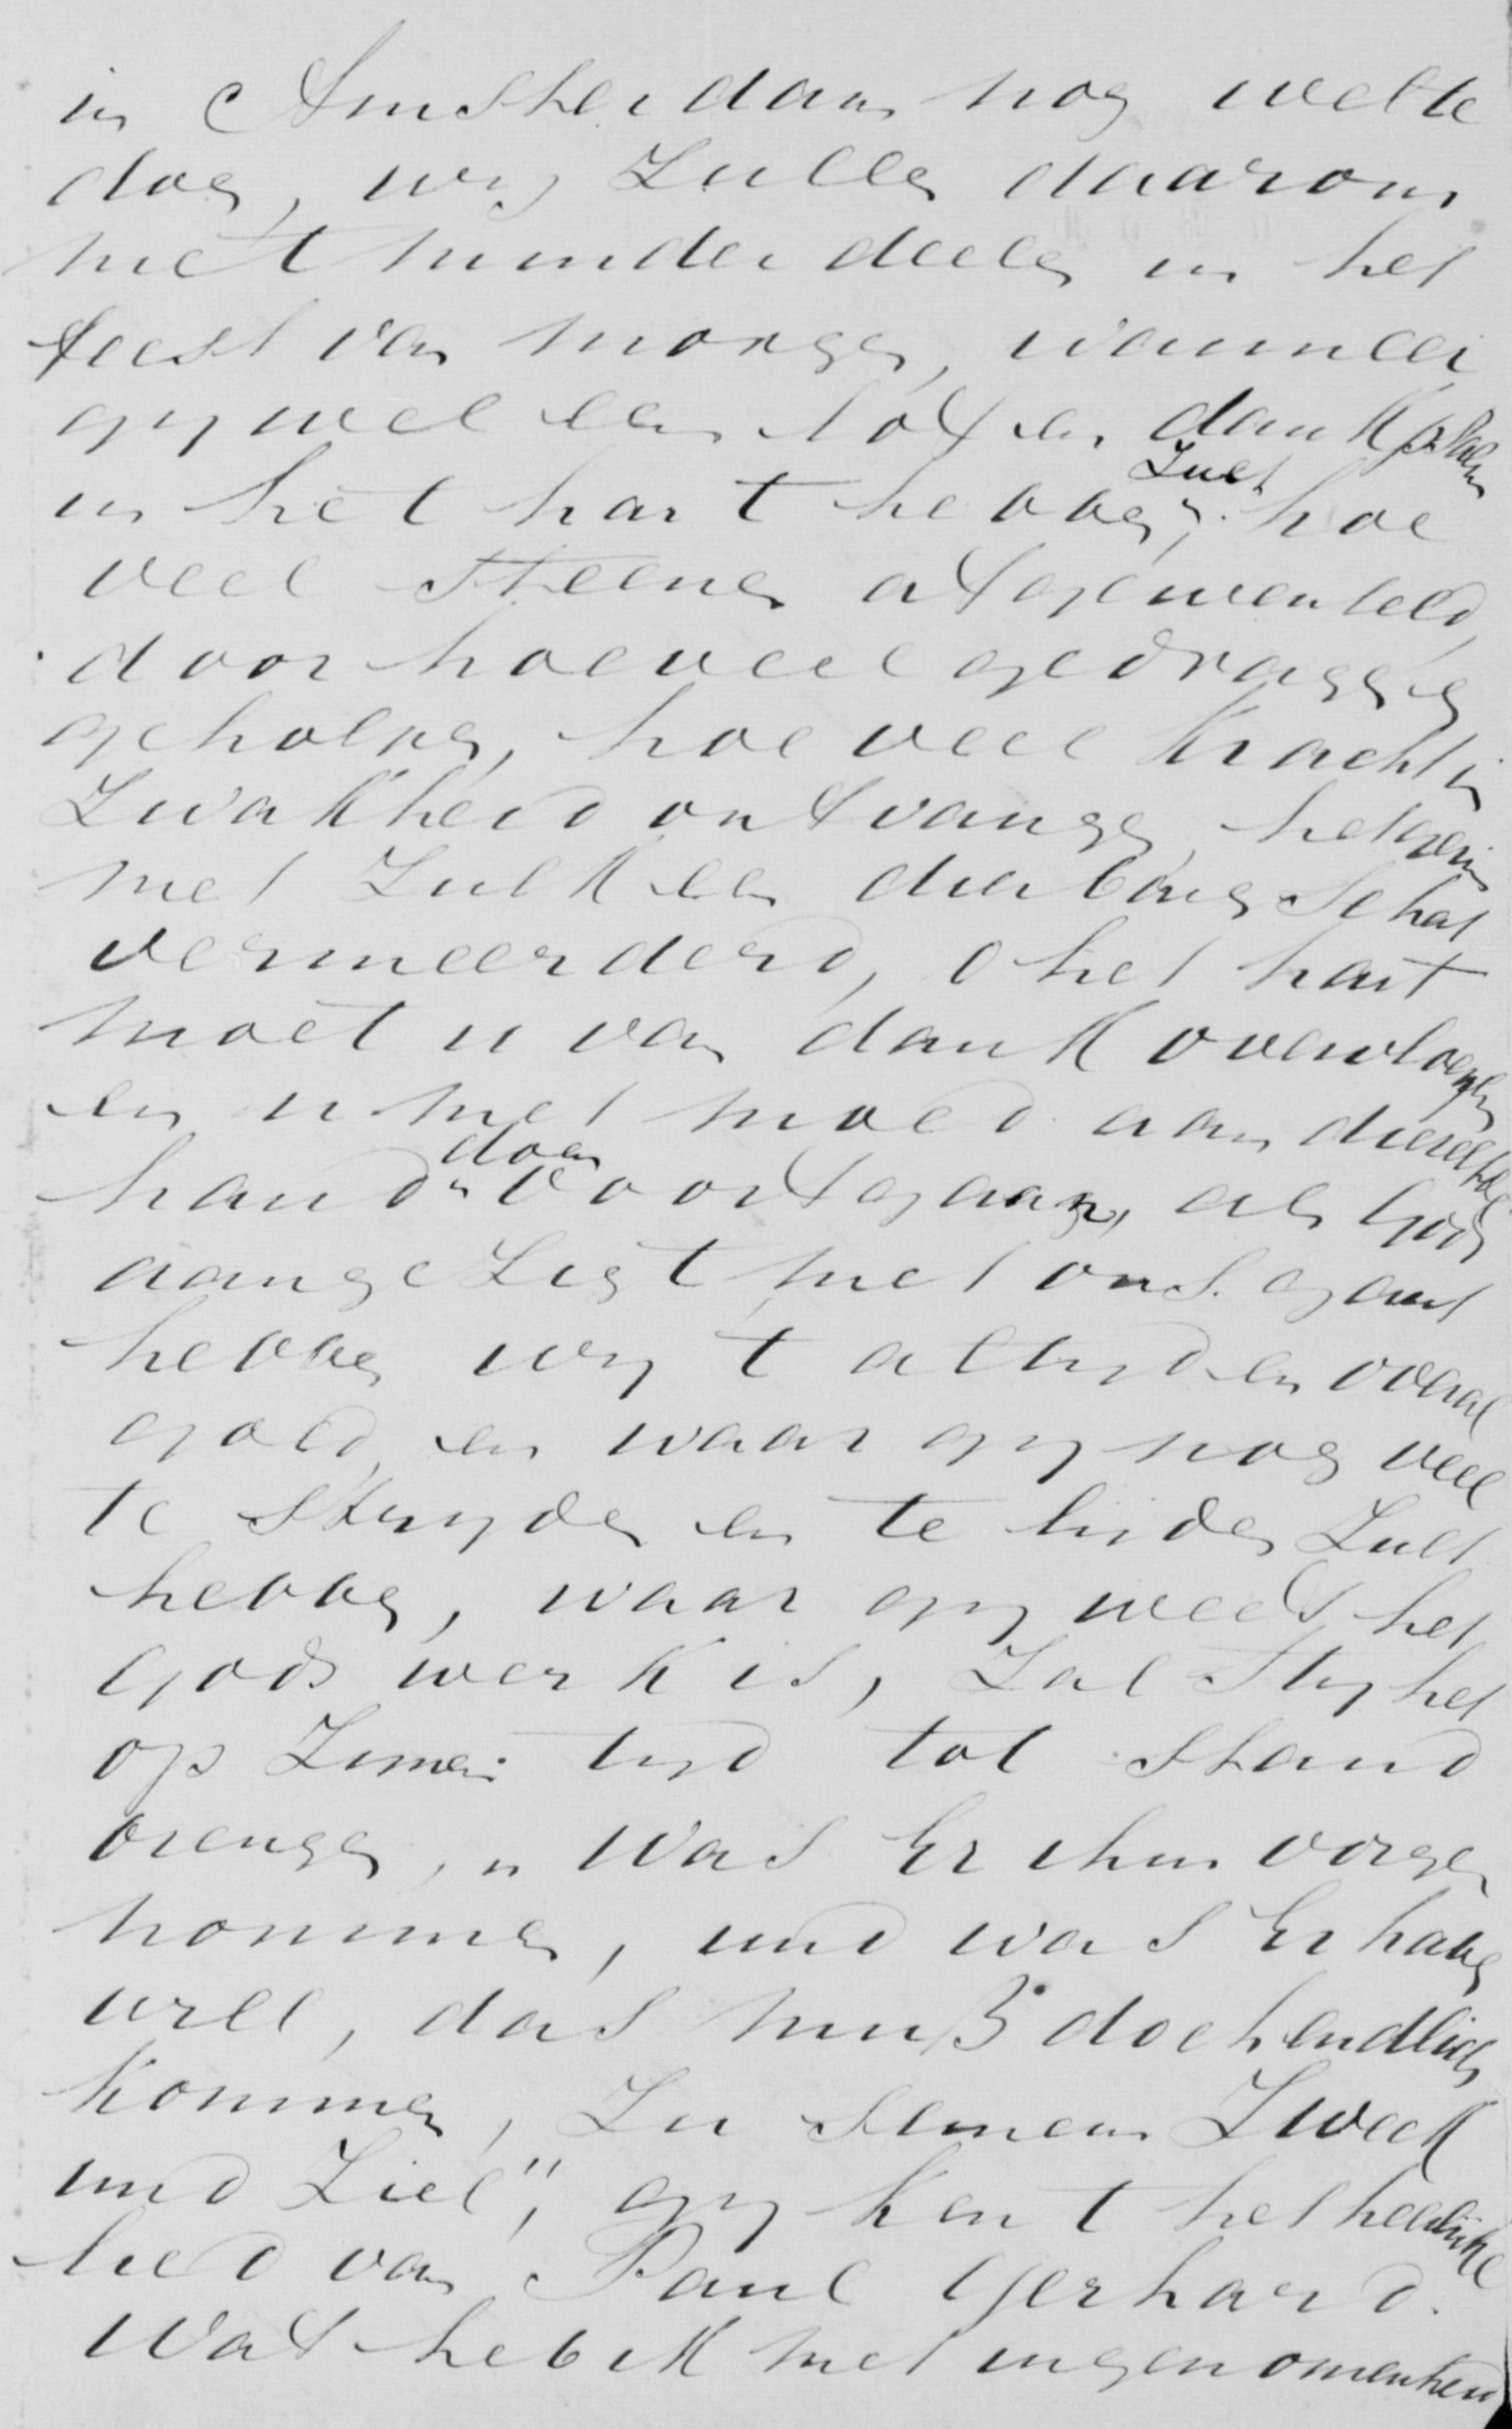 in Amsterdam nog welke
dag, wij zullen daarom
niet minder deelen in het
feest van morgen, wanneer
gij wel een lof en dankpsalm
in het hart hebben zult, hoe
veel steenen afgewenteld,
door hoeveel gedragen en
geholpen, hoe veel kracht in
zwakheid ontvangen,
met zulk een dierbaren schat
vermeerderd, o het hart
moet u van dank overvloeyen
en u met moed aan diezelfde
hand doen voortgaan, als Gods
aangezigt met ons gaat
hebben wij 't altijd en overal
goed, en waar gij nog veel
te strijden en te lijden zult
hebben, waar gij weet het
Gods werk is, zal Hij het
op zijnen tijd tot stand
brengen, „Was Er ihm vorge
nommen, und was Er haben
will, das muß doch endlich
kommen, zu seinem Zweck
und Ziel", gij kent het heerlijke
lied van Paul Gerhard.
Wat heb ik met ingenomenheid